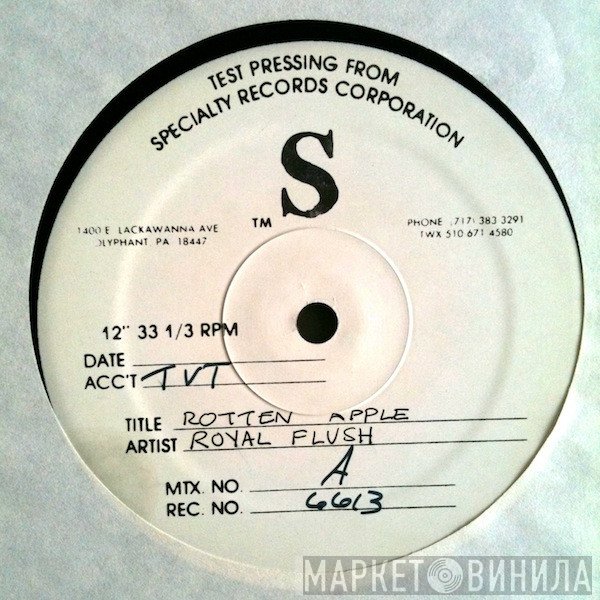 TEST PRESSING FROM
SPECIALTY RECORDS CORPORATION
S
TM
1400 E LACKAWANNA AVE
OLYPHANT PA 18447
PHONE (717) 383 3291
TWX 510 671 4580
12" 33 1/3 RPM
DATE
ACC'T TVT
TITLE ROTTEN APPLE
ARTIST ROYAL FLUSH
MTX. NO. A
REC. NO. 6613
МАРКЕТ ВИНИЛА